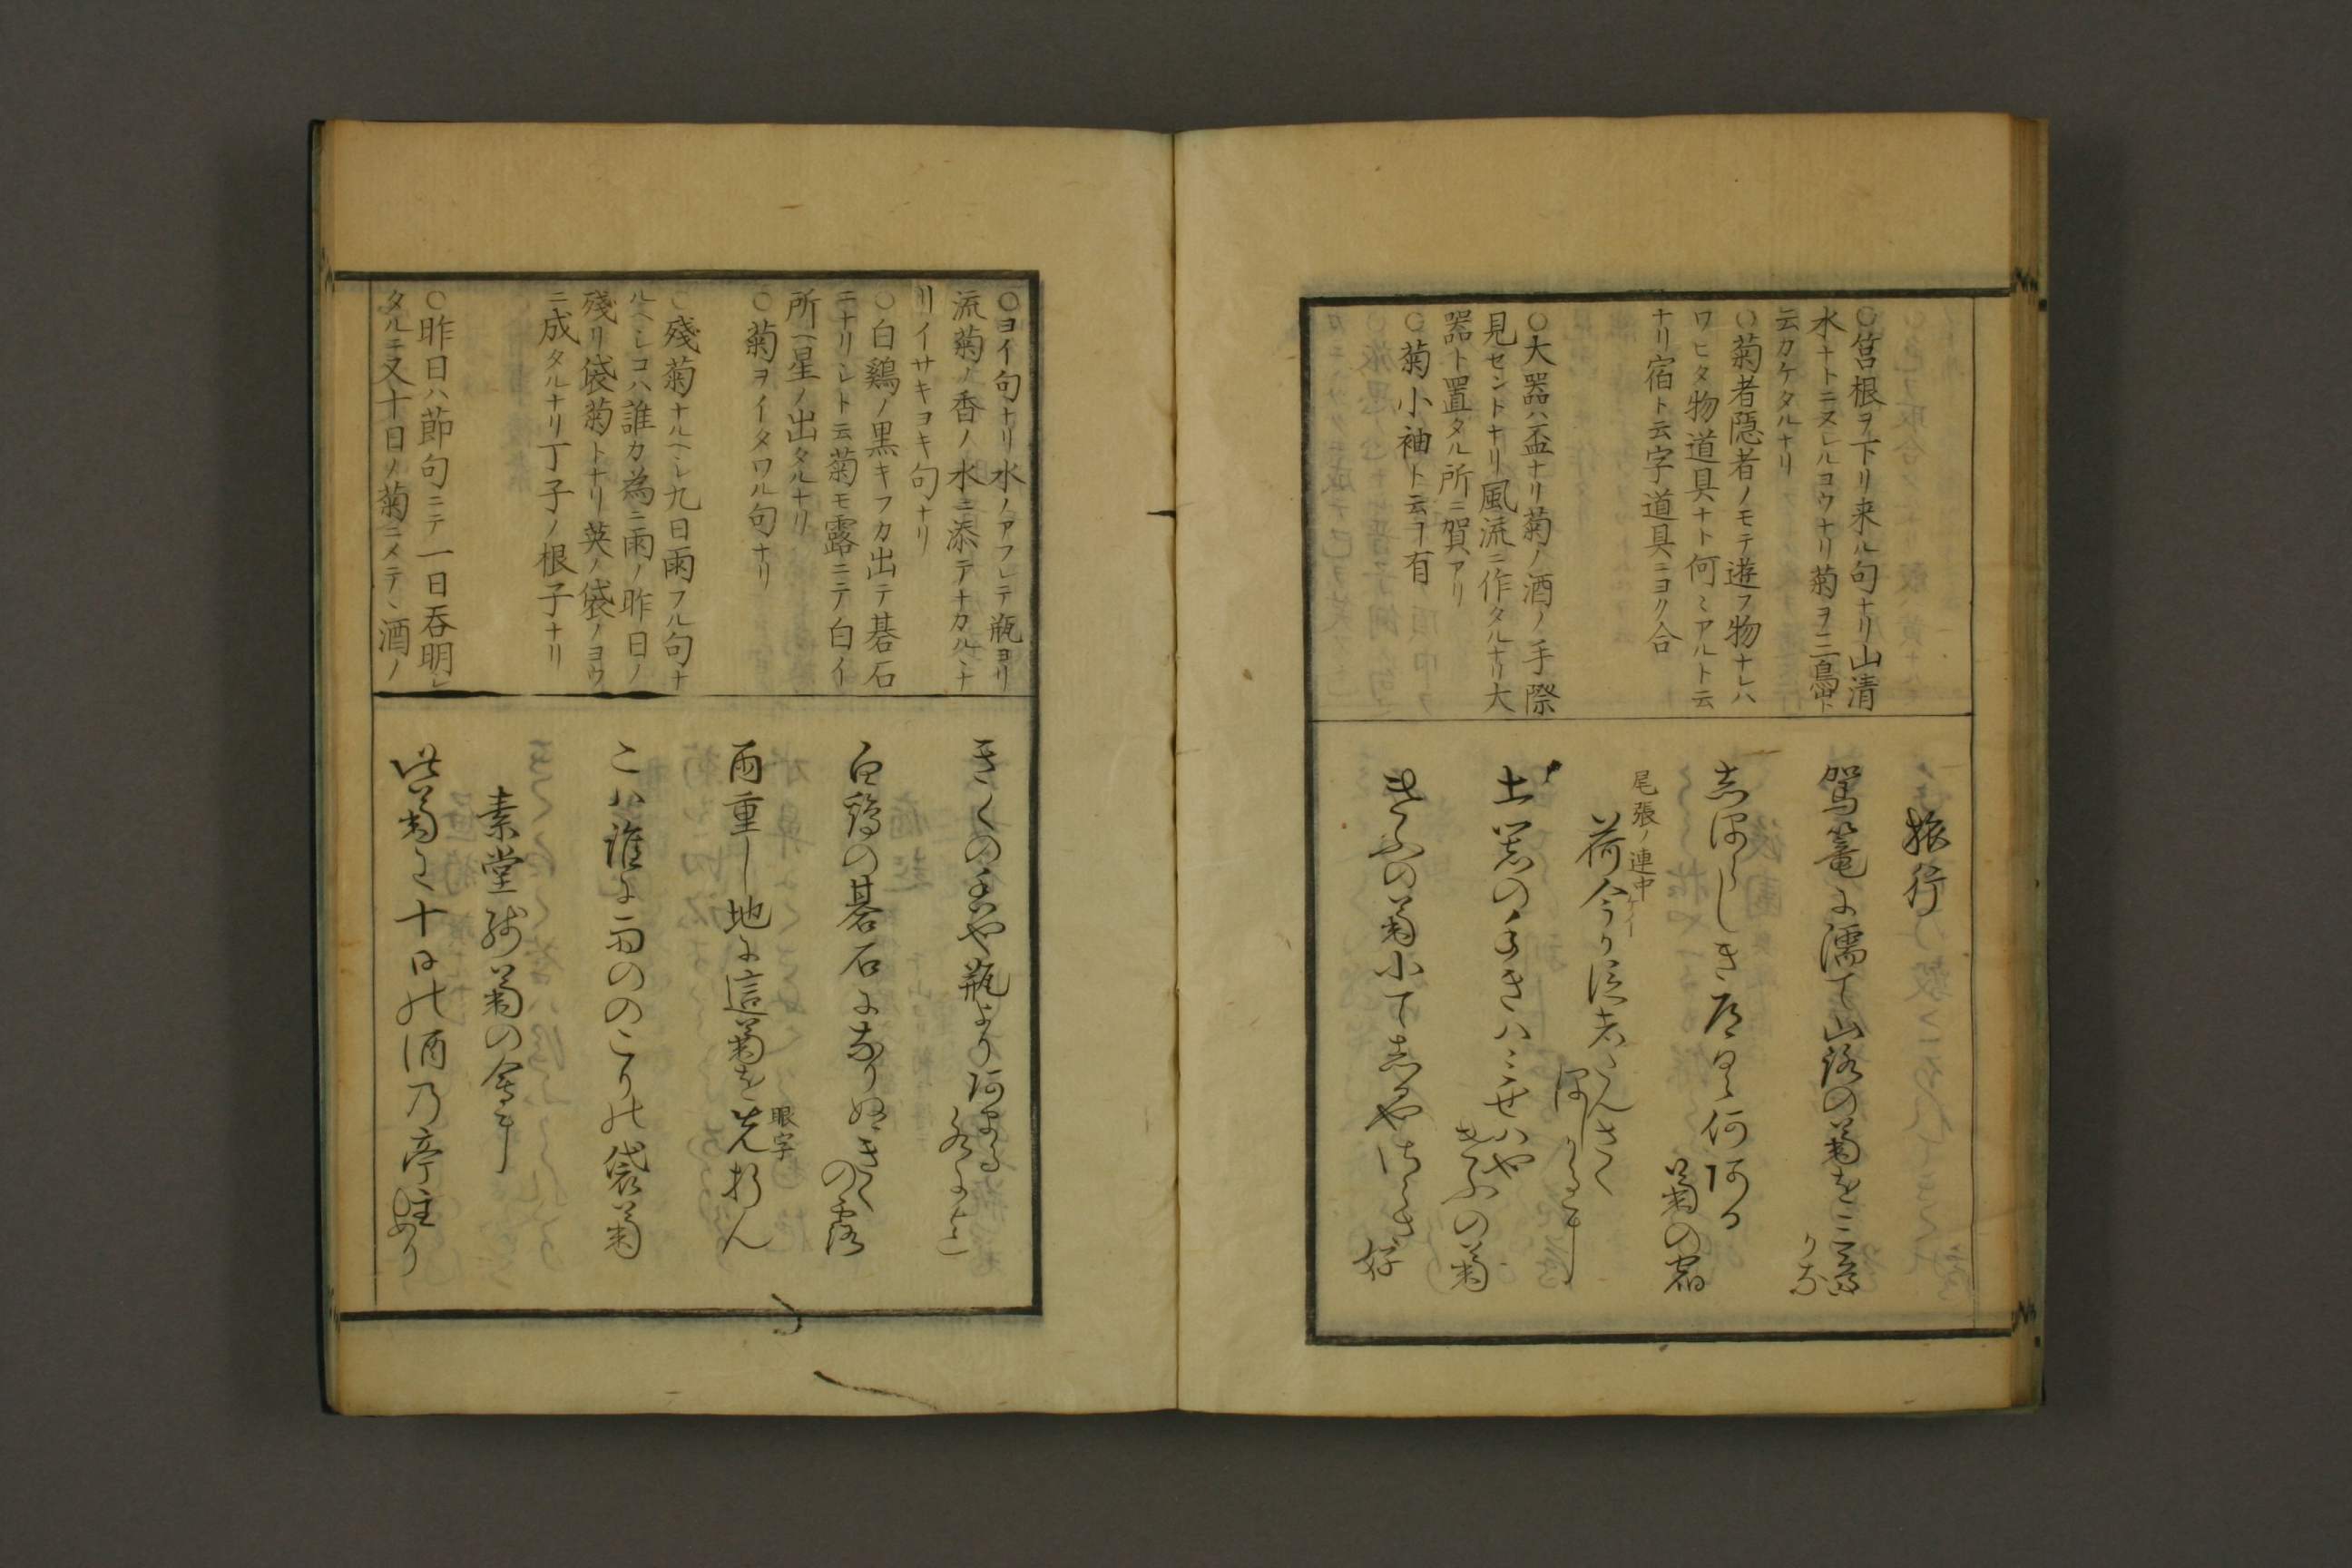 ○筥根ヲ下リ来ル句ナリ山清
水ナトニヌレルヨウナリ菊ヲ三島ト
云カケタルナリ
○菊者隠者ノモテ遊フ物ナレハ
ワヒタ物道具ナト何ミアルト云
ナリ宿ト云字道具ニヨク合
○大器ハ盃ナリ菊ノ酒ノ手際
見セントナリ風流ニ作タルナリ大
器ト置タル所ニ賀アリ
○菊小袖ト云フ有
旅行
駕籠に濡て山路の菊を三島
かな
しほらしき道具何ある
菊の宿
尾張ノ連中
土器の手きハミせハや
きふの菊
きふの菊小てしや
○ヨイ句ナリ水ノアフレテ瓶ヨリ
流菊ノ香ノ水ニ添テナカルヽナ
リイサキヨキ句ナリ
○白鶏ノ黒キフカ出テ碁石
ニナリシト云菊モ露ニテ白イ
所ヘ星ノ出タルナリ
○菊ヲイタワル句ナリ
○殘菊ナルヘシ九日雨フル句ナ
ルヘシコハ誰カ為ニ雨ノ昨日ノ
殘リ袋菊トナリ英ノ袋ノヨウ
ニ成タルナリ丁子ノ根子ナリ
○昨日ハ節句ニテ一日呑明シ
タルニ又十日ノ菊ニメテヽ酒ノ
きくの香や瓶よりあまる
水に迄
白鶏の碁石になりぬきく
の露
雨重し地に這菊を先折ん
眼字
こハ誰に雨ののこりの袋菊
素堂残菊の會に
此菊に十日の酒の亭主あり